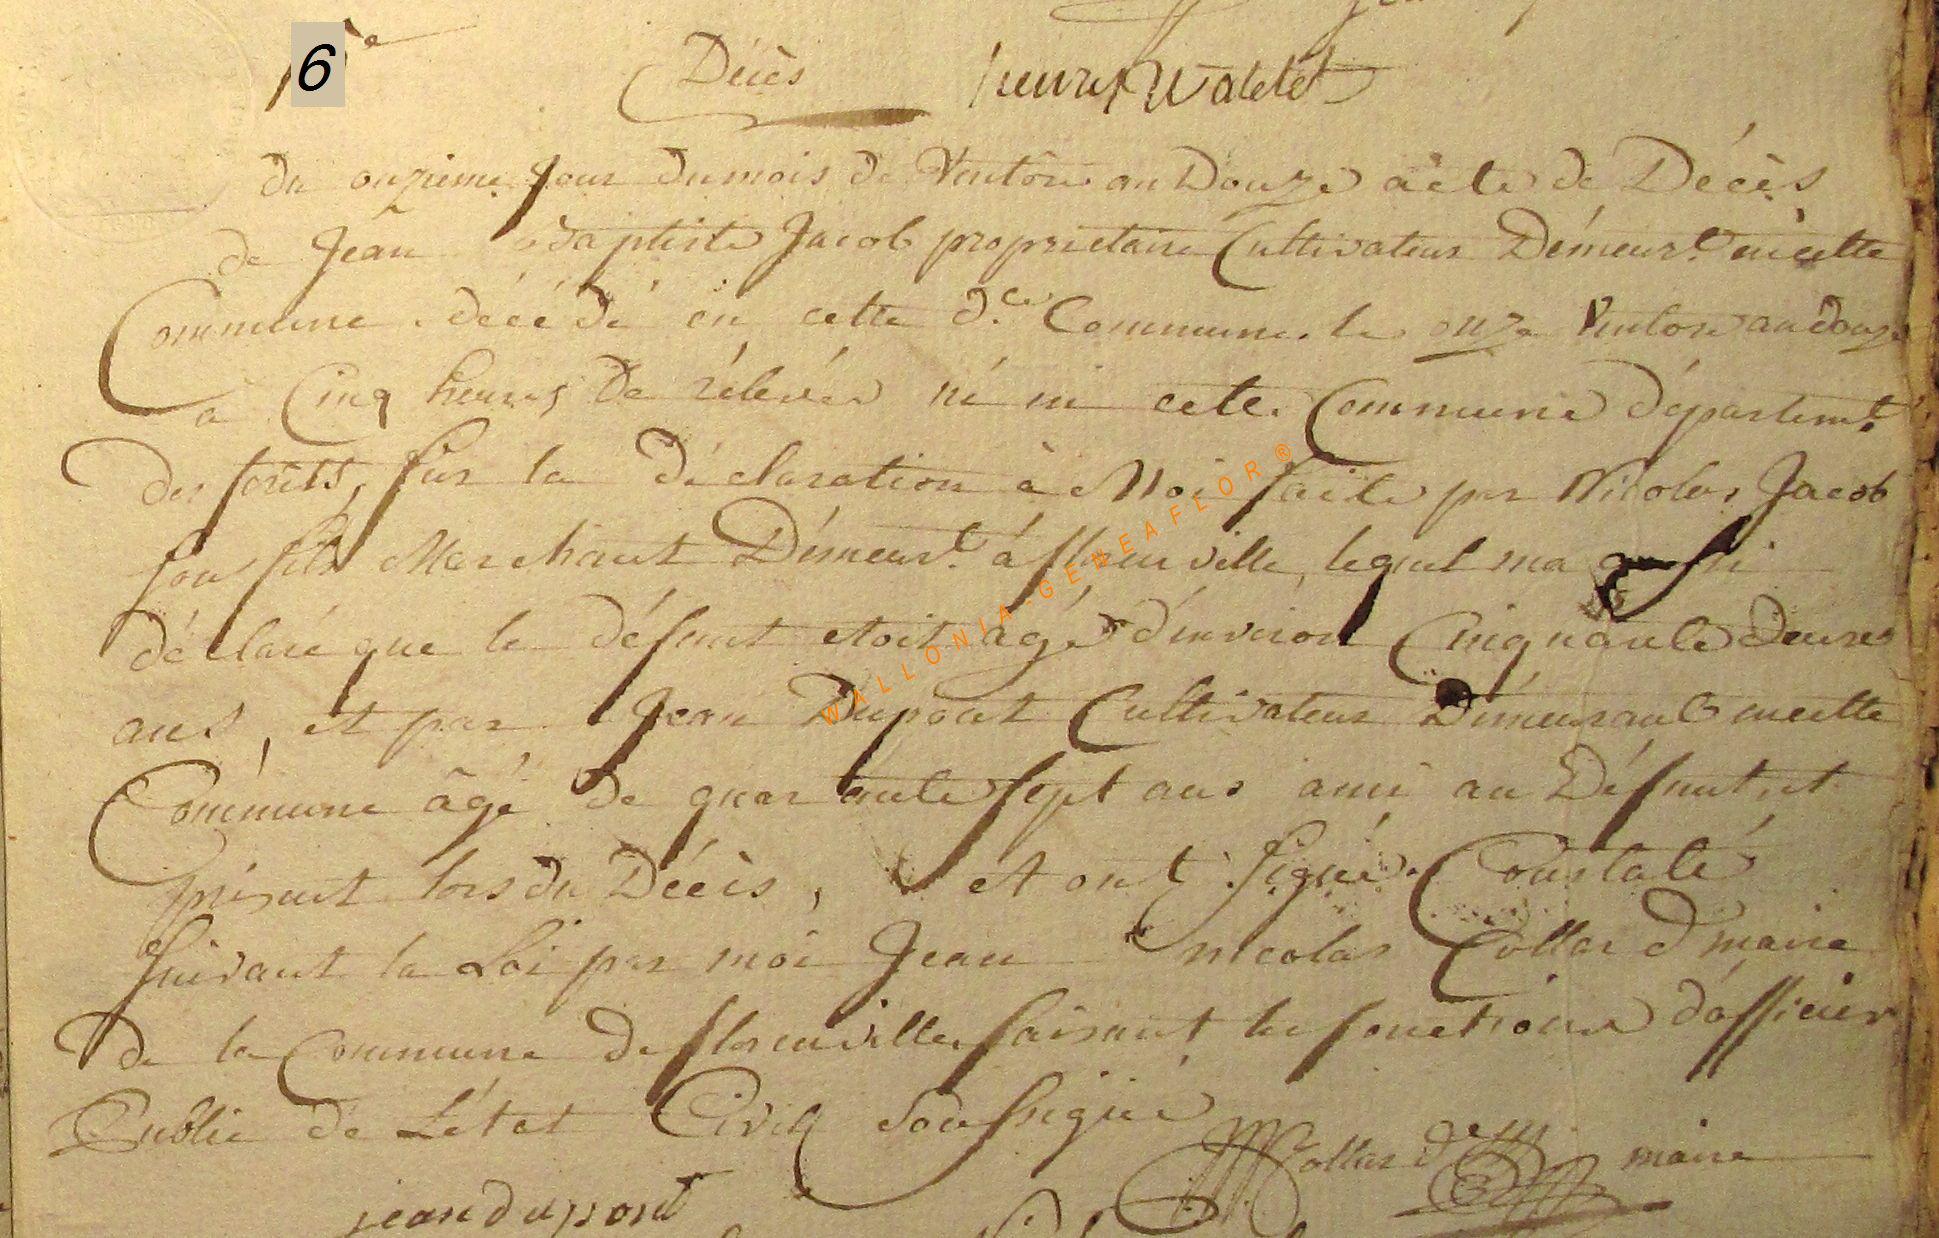 6e
Décès henry Watelet
du onzieme Jour du mois de Ventôse an Douze acte de Décès
de Jean Baptiste Jacob proprietaire Cultivateur Démeurt. en cette
Commune, décédé en cette d.te Commune, le onze Ventose an douze
a Cinq heures de rélevée né en cete Commune départemt.
des forêts, sur la déclaration à Moi faite par Nicolas Jacob
son fils Marchant Démeurt. à florenville, lequel ma aussi
déclaré que le défunt etoit agé d'environ Cinquante Deuxe
ans, et par Jean Dupont Cultivateur Démeurant en cette
Commune âgé de quarante sept ans ami au Défunt, et
présent lors du Décès, et ont signé. Constaté
suivant la Loi par moi Jean nicolas Collard maire
de la Commune de florenville faisant les fonctions d'officier
Public de L'état Civil soussigné
Collard maire
jean dupont
WALLONIA-GENEAFLOR®